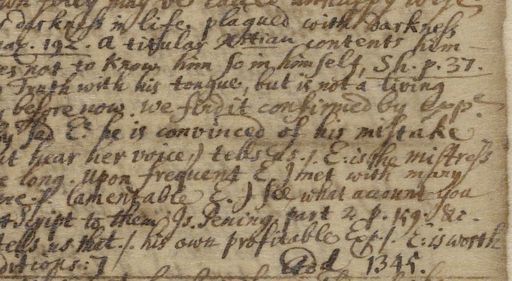 darkness in life, plagued with darkness
192. A titular Xtian contents him
not to know him so in himself, Sh. p. 37.
Truth with his tongue, but is not a living
before now we find it confirmed by Expe
sad E: he is convinced of his mistake
hear her voice,) tells us. /. E: is the mistress
long upon frequent E. ) met with many
lamentable E. ) see what account you
script to them Is. Pening. part 2. p. 159. &c.
tells us that. /. his own profitable Exp /. E: is worth
ditions: ] 1345.